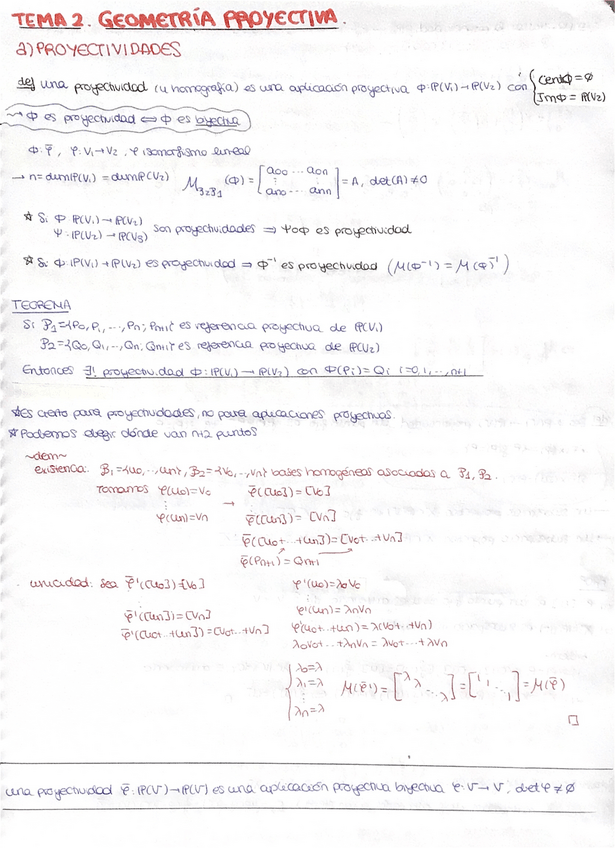 TEMA 2. GEOMETRÍA PROYECTIVA.
a) PROYECTIVIDADES
def una proyectividad (u homografía) es una aplicación proyectiva Φ: P(V₁) → P(V₂) con { CentΦ = ∅
ImΦ = P(V₂)
→ Φ es proyectividad ⇔ Φ es biyectiva
Φ: φ̄, φ: V₁ → V₂, φ isomorfismo lineal
→ n = dimP(V₁) = dimP(V₂) M_{β₂β₁}(Φ) = [a₀₀ ... a₀ₙ ⋮ ⋮ aₙ₀ ... aₙₙ] = A, det(A) ≠ 0
☆ Si Φ: P(V₁) → P(V₂)
Ψ: P(V₂) → P(V₃) son proyectividades ⇒ Ψ∘Φ es proyectividad
☆ Si Φ: P(V₁) → P(V₂) es proyectividad ⇒ Φ⁻¹ es proyectividad (M(Φ⁻¹) = M(Φ)⁻¹)
TEOREMA
Si β₁ = {P₀, P₁, ..., Pₙ; Pₙ₊₁} es referencia proyectiva de P(V₁)
β₂ = {Q₀, Q₁, .., Qₙ; Qₙ₊₁} es referencia proyectiva de P(V₂)
Entonces ∃! proyectividad Φ: P(V₁) → P(V₂) con Φ(Pᵢ) = Qᵢ i=0,1,..,n+1
☆ Es cierto para proyectividades, no para aplicaciones proyectivas.
☆ Podemos elegir dónde van n+2 puntos
~dem~
existencia: B₁ = {u₀, .., uₙ}, B₂ = {v₀, .., vₙ} bases homogéneas asociadas a β₁, β₂.
Tomamos φ(u₀) = v₀ φ̄([u₀]) = [v₀]
⋮ → ⋮
φ(uₙ) = vₙ φ̄([uₙ]) = [vₙ]
φ̄([u₀+ .. +uₙ]) = [v₀+ .. +vₙ]
φ̄(Pₙ₊₁) = Qₙ₊₁
unicidad: Sea φ̄'([u₀]) = [v₀] φ'(u₀) = λ₀v₀
⋮
φ̄'([uₙ]) = [vₙ] φ'(uₙ) = λₙvₙ
φ̄'([u₀+ .. +uₙ]) = [v₀+ .. +vₙ] φ'(u₀+ .. +uₙ) = λ(v₀+ .. +vₙ)
λ₀v₀+ .. +λₙvₙ = λv₀+ .. +λvₙ
{ λ₀ = λ
λ₁ = λ M(φ̄') = [λ λ ⋱ λ] = [1 1 ⋱ 1] = M(φ̄)
⋮
λₙ = λ
□
una proyectividad φ̄: P(V) → P(V) es una aplicación proyectiva biyectiva φ: V → V, detφ ≠ 0